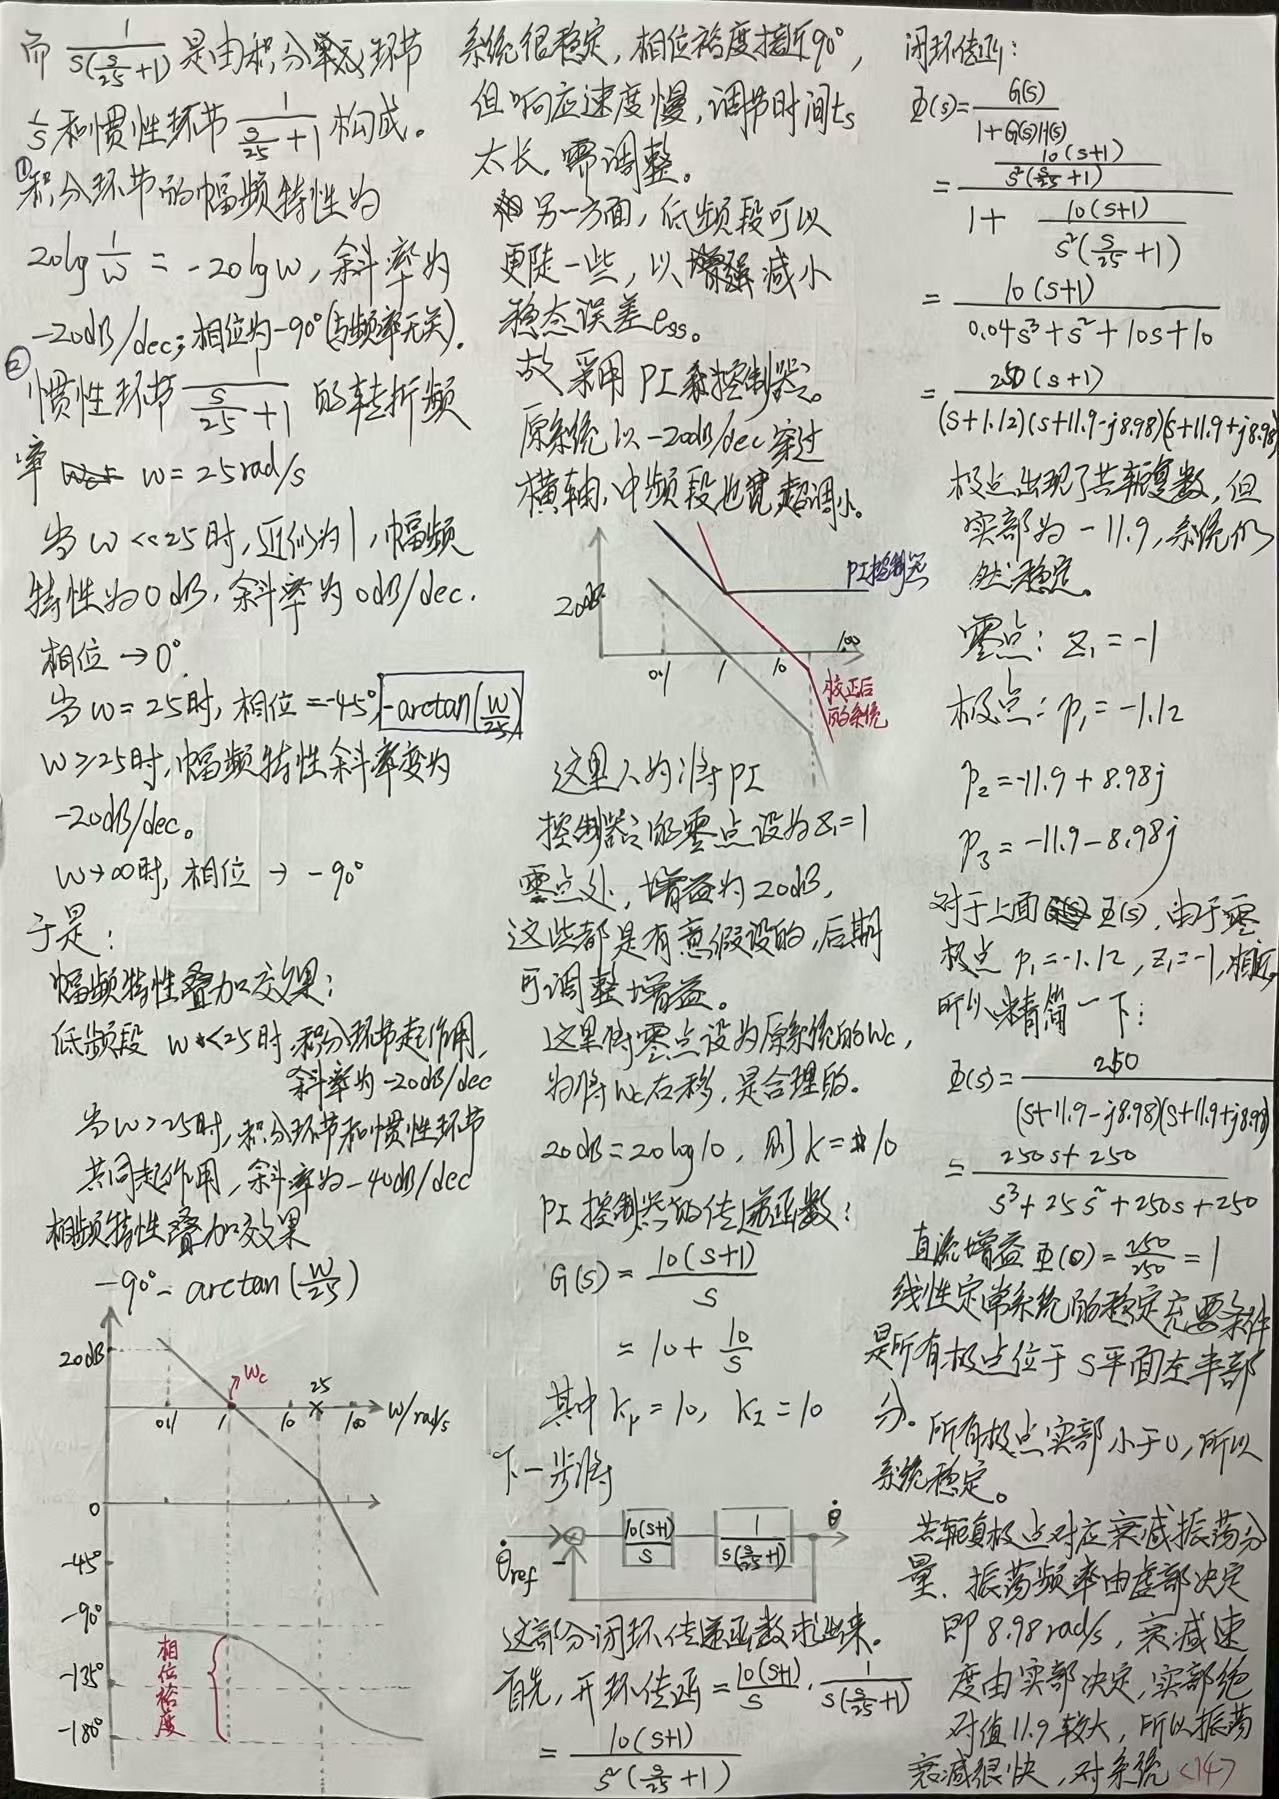 而 1/(s(s/25+1)) 是由积分单元环节
1/s 和惯性环节 1/(s/25+1) 构成。
①积分环节的幅频特性为
20lg 1/w = -20lgw, 斜率为
-20dB/dec; 相位为-90°(与频率无关).
②惯性环节 1/(s/25+1) 的转折频
率 w=25rad/s
当w<<25时,近似为1,幅频
特性为0dB,斜率为0dB/dec.
相位→0°.
当w=25时,相位=-45°, -arctan(w/25)
w≥25时,幅频特性斜率变为
-20dB/dec。
w→∞时,相位→-90°
于是:
幅频特性叠加效果:
低频段 w<25时,积分环节起作用,
斜率为-20dB/dec
当w>25时,积分环节和惯性环节
共同起作用,斜率为-40dB/dec
相频特性叠加效果
-90°-arctan(w/25)
20dB
wc
25
0.1 1 10 100 w/rad/s
0
-45°
-90°
-135°
-180°
相位裕度
系统很稳定,相位裕度接近90°,
但响应速度慢,调节时间ts
太长。需调整。
另一方面,低频段可以
更陡一些,以减小
稳态误差ess。
故采用PI控制器。
原系统以-20dB/dec穿过
横轴,中频段也宽,超调小。
20dB
PI控制器
0.1 1 10 100
校正后
的系统
这里人为将PI
控制器的零点设为z1=1
零点处,增益为20dB,
这些都是有意假设的,后期
可调整增益。
这里将零点设为原系统的wc,
为将wc右移,是合理的。
20dB=20lg10, 则K=10
PI控制器的传递函数:
G(s)= 10(s+1)/s
= 10+ 10/s
其中 Kp=10, KI=10
下一步将
θ̇ref
-
10(s+1)/s
1/(s(s/25+1))
θ̇
这部分闭环传递函数求出来。
首先,开环传函= 10(s+1)/s · 1/(s(s/25+1))
= 10(s+1)/(s²(s/25+1))
闭环传函:
Φ(s)= G(s)/(1+G(s)H(s))
= (10(s+1)/(s²(s/25+1)))/(1+ 10(s+1)/(s²(s/25+1)))
= 10(s+1)/(0.04s³+s²+10s+10)
= 250(s+1)/((s+1.12)(s+11.9-j8.98)(s+11.9+j8.98))
极点出现了共轭复数,但
实部为-11.9,系统仍
然稳定。
零点: z1=-1
极点: p1=-1.12
p2=-11.9+8.98j
p3=-11.9-8.98j
对于上面Φ(s),由于零
极点 p1=-1.12, z1=-1,相近,
所以精简一下:
Φ(s)= 250/((s+11.9-j8.98)(s+11.9+j8.98))
= (250s+250)/(s³+25s²+250s+250)
直流增益 Φ(0)=250/250=1
线性定常系统的稳定充要条件
是所有极点位于s平面左半部
分。所有极点实部小于0,所以
系统稳定。
共轭复极点对应衰减振荡分
量,振荡频率由虚部决定
即8.98rad/s,衰减速
度由实部决定,实部绝
对值11.9较大,所以振荡
衰减很快,对系统 <14>